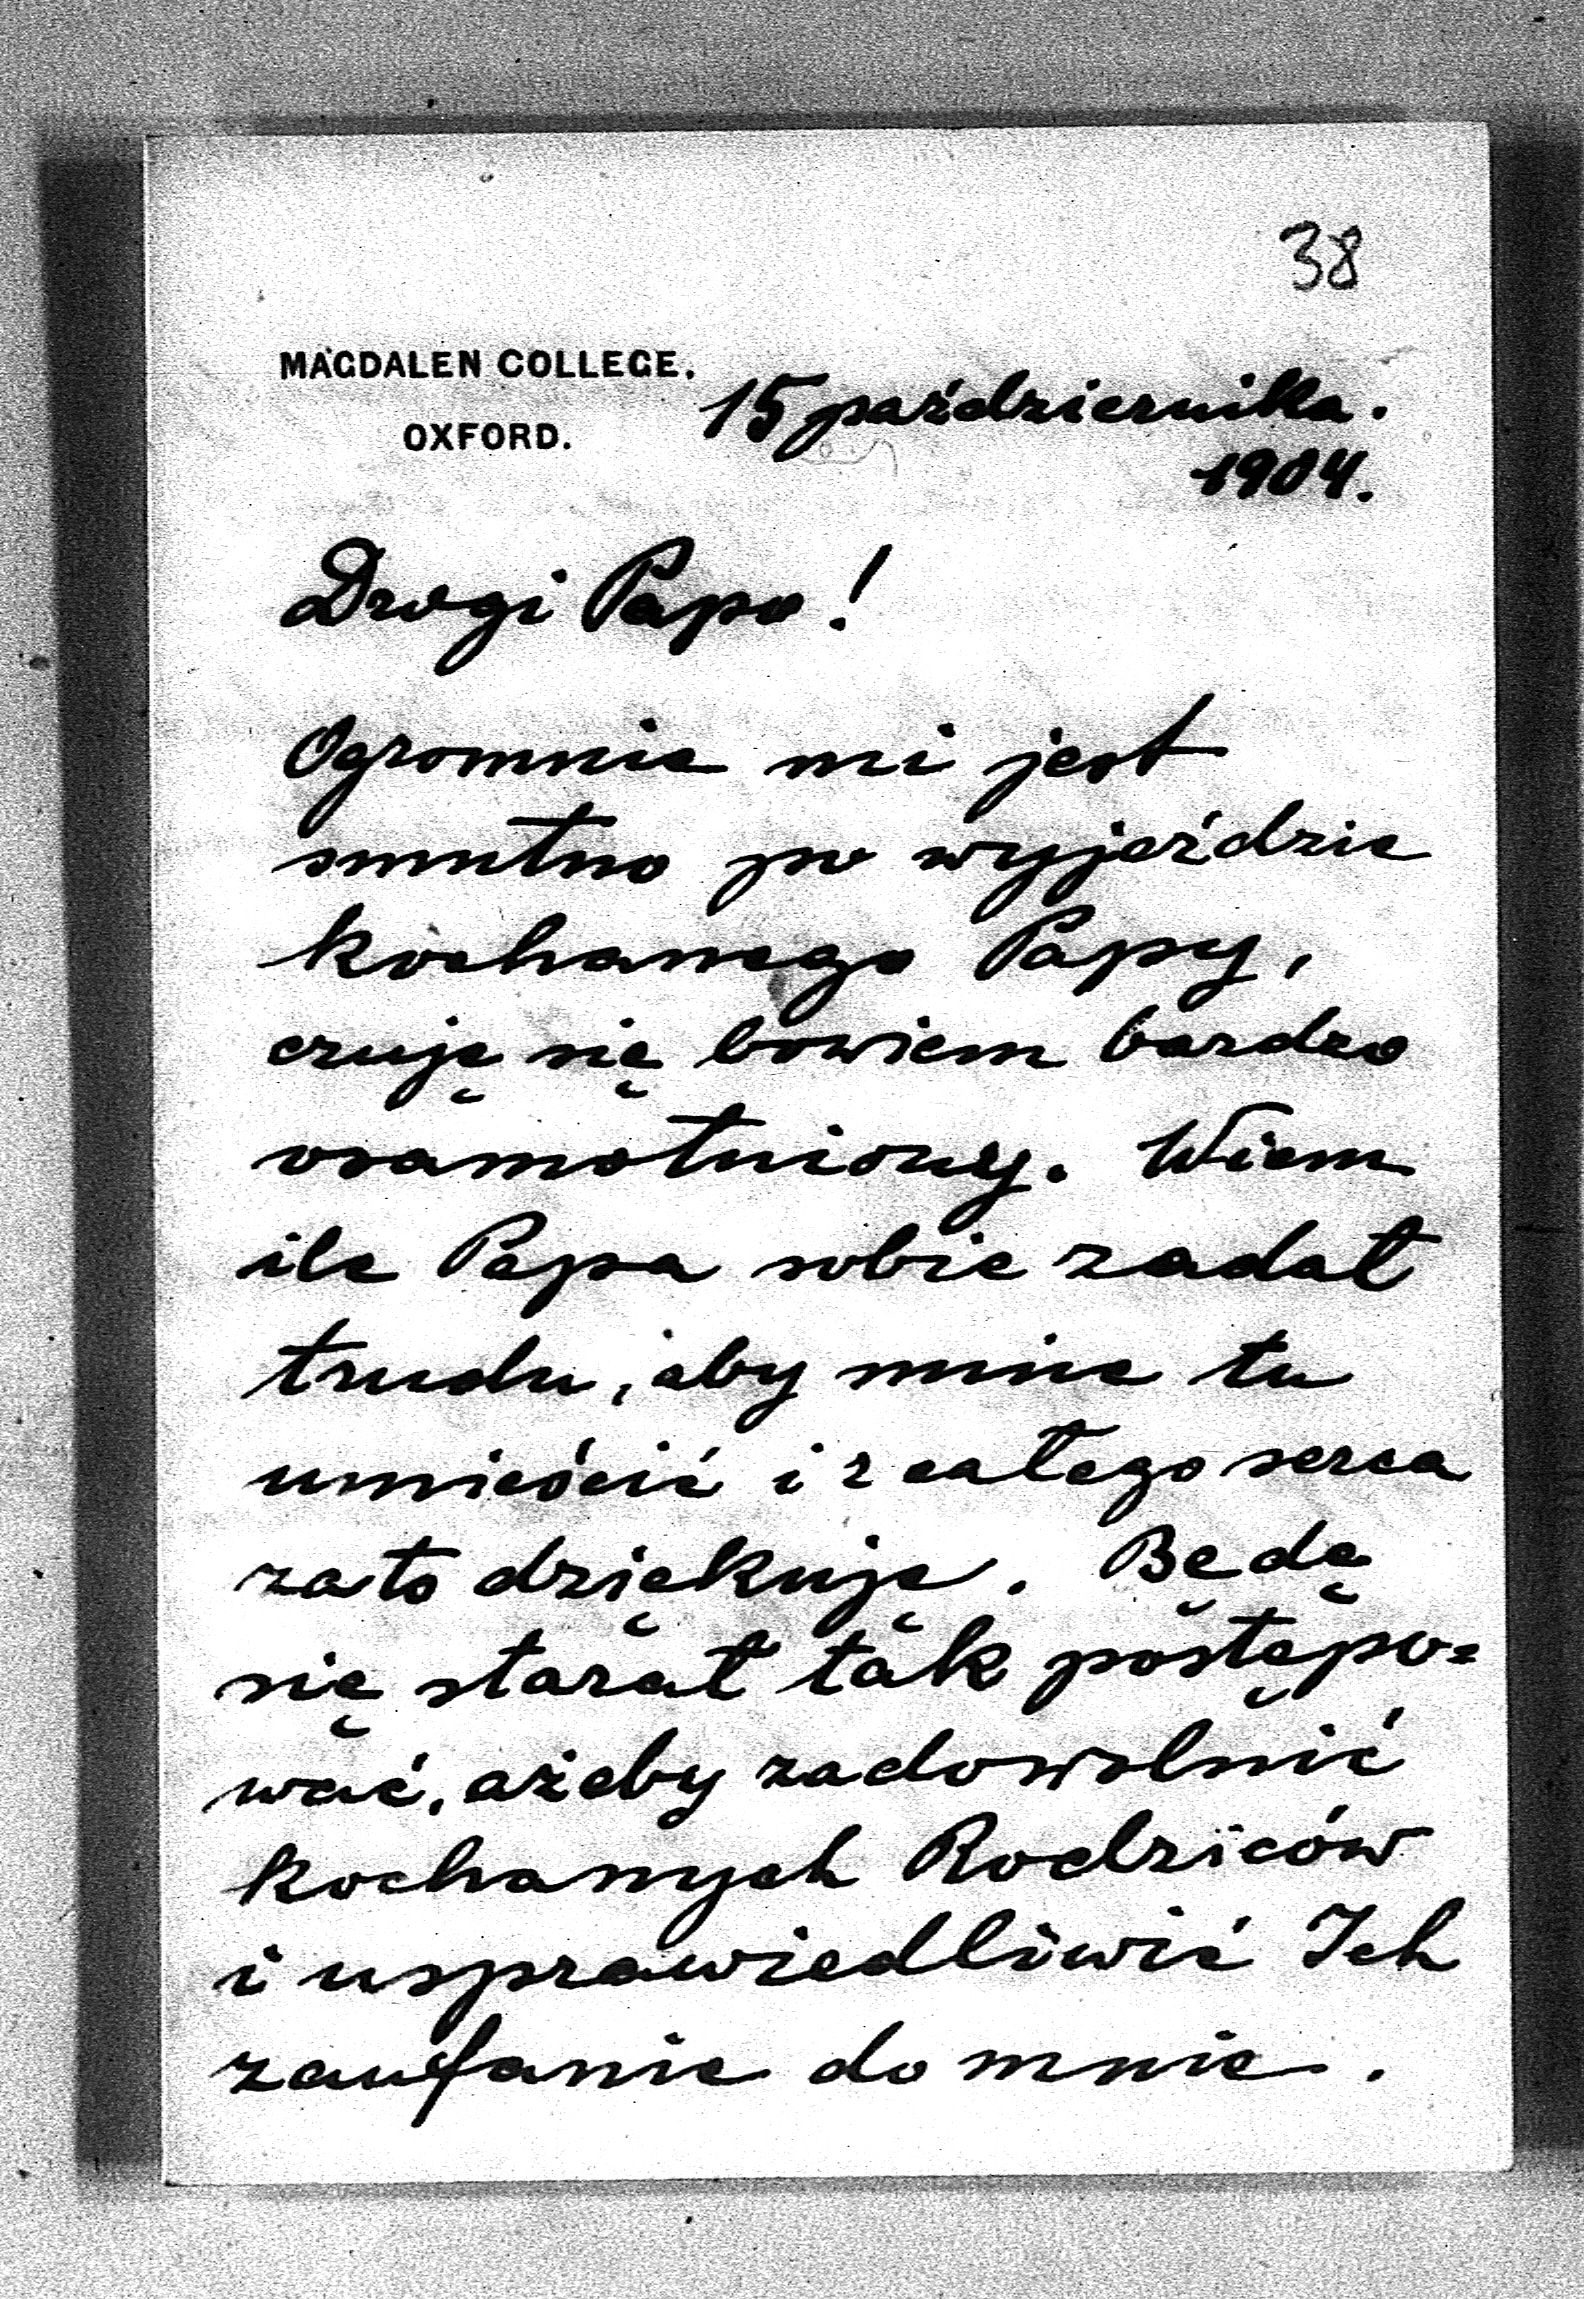 38
MAGDALEN COLLEGE.
OXFORD.
15 października.
1904.
Drogi Papo!
Ogromnie mi jest
smutno po wyjeździe
kochanego Papy,
czuję się bowiem bardzo
osamotniony. Wiem
ile Papa sobie zadał
trudu, aby mnie tu
umieścić i z całego serca
za to dziękuję. Będę
się starał tak postępo=
wać, ażeby zadowolnić
kochanych Rodziców
i usprawiedliwić Ich
zaufanie do mnie.